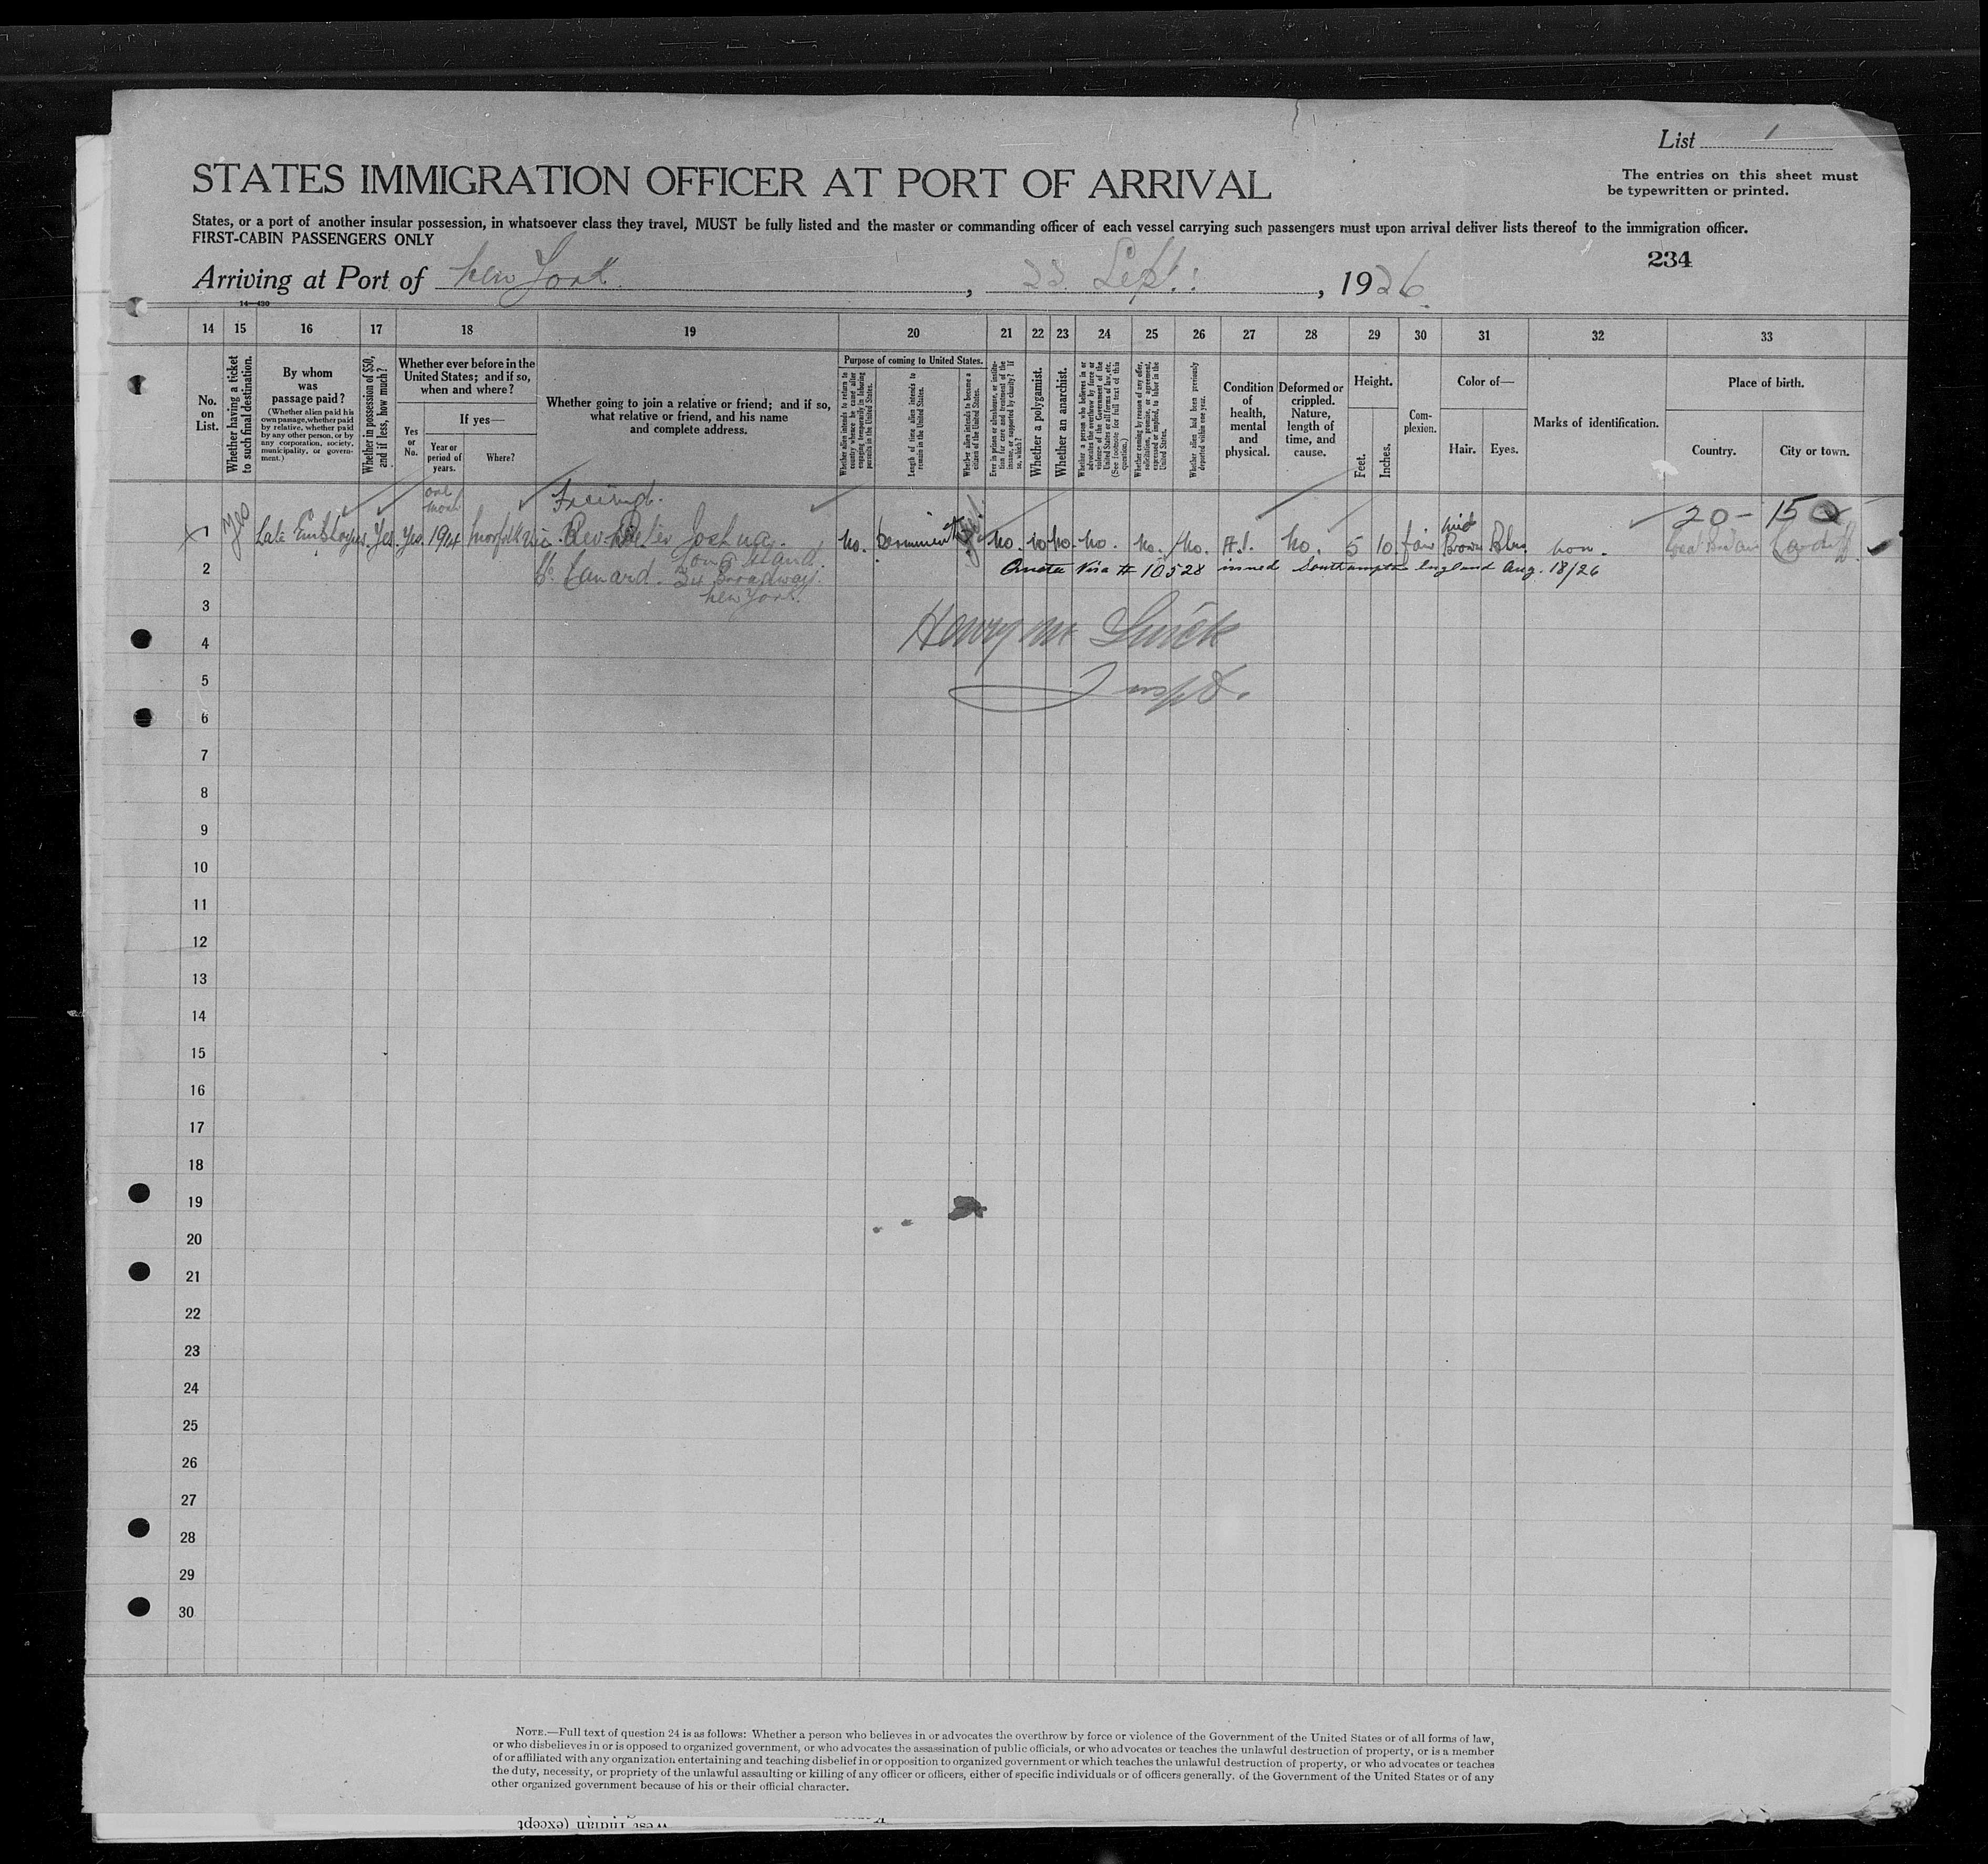 List 1
STATES IMMIGRATION OFFICER AT PORT OF ARRIVAL
The entries on this sheet must
be typewritten or printed.
States, or a port of another insular possession, in whatsoever class they travel, MUST be fully listed and the master or commanding officer of each vessel carrying such passengers must upon arrival deliver lists thereof to the immigration officer.
FIRST-CABIN PASSENGERS ONLY
234
Arriving at Port of New York, 23 Sept:, 1926.
14—430
14 15 16 17 18 19 20 21 22 23 24 25 26 27 28 29 30 31 32 33
No.
on
List.
Whether having a ticket
to such final destination.
By whom
was
passage paid?
(Whether alien paid his
own passage, whether paid
by relative, whether paid
by any other person, or by
any corporation, society,
municipality, or govern-
ment.)
Whether in possession of $50,
and if less, how much?
Whether ever before in the
United States; and if so,
when and where?
Yes
or
No.
If yes—
Year or
period of
years.
Where?
Whether going to join a relative or friend; and if so,
what relative or friend, and his name
and complete address.
Purpose of coming to United States.
Whether alien intends to return to
country whence he came after
engaging temporarily in laboring
pursuits in the United States.
Length of time alien intends to
remain in the United States.
Whether alien intends to become a
citizen of the United States.
Ever in prison or almshouse, or institu-
tion for care and treatment of the
insane, or supported by charity? If
so, which?
Whether a polygamist.
Whether an anarchist.
Whether a person who believes in or
advocates the overthrow by force or
violence of the Government of the
United States or all forms of law, etc.
(See footnote for full text of this
question.)
Whether coming by reason of any offer,
solicitation, promise, or agreement,
expressed or implied, to labor in the
United States.
Whether alien had been previously
deported within one year.
Condition
of
health,
mental
and
physical.
Deformed or
crippled.
Nature,
length of
time, and
cause.
Height.
Feet.
Inches.
Com-
plexion.
Color of—
Hair.
Eyes.
Marks of identification.
Place of birth.
Country.
City or town.
one
Friend.
20 - 150
1 Yes Late Employer. Yes. Yes. 1914 Norfolk Joshua. No. Permanent Yes No. No No. No. No. No. A.1. No. 5 10 fair Brown Blue non. Great Britain Cardiff
Long Island.
2 Cunard. 24 Broadway. Quota Visa # 10528 issued Southampton England Aug. 18/26
New York.
3
4 Henry
5 Inspt.
6
7
8
9
10
11
12
13
14
15
16
17
18
19
20
21
22
23
24
25
26
27
28
29
30
NOTE.—Full text of question 24 is as follows: Whether a person who believes in or advocates the overthrow by force or violence of the Government of the United States or of all forms of law,
or who disbelieves in or is opposed to organized government, or who advocates the assassination of public officials, or who advocates or teaches the unlawful destruction of property, or is a member
of or affiliated with any organization entertaining and teaching disbelief in or opposition to organized government or which teaches the unlawful destruction of property, or who advocates or teaches
the duty, necessity, or propriety of the unlawful assaulting or killing of any officer or officers, either of specific individuals or of officers generally. of the Government of the United States or of any
other organized government because of his or their official character.
West Indian (except